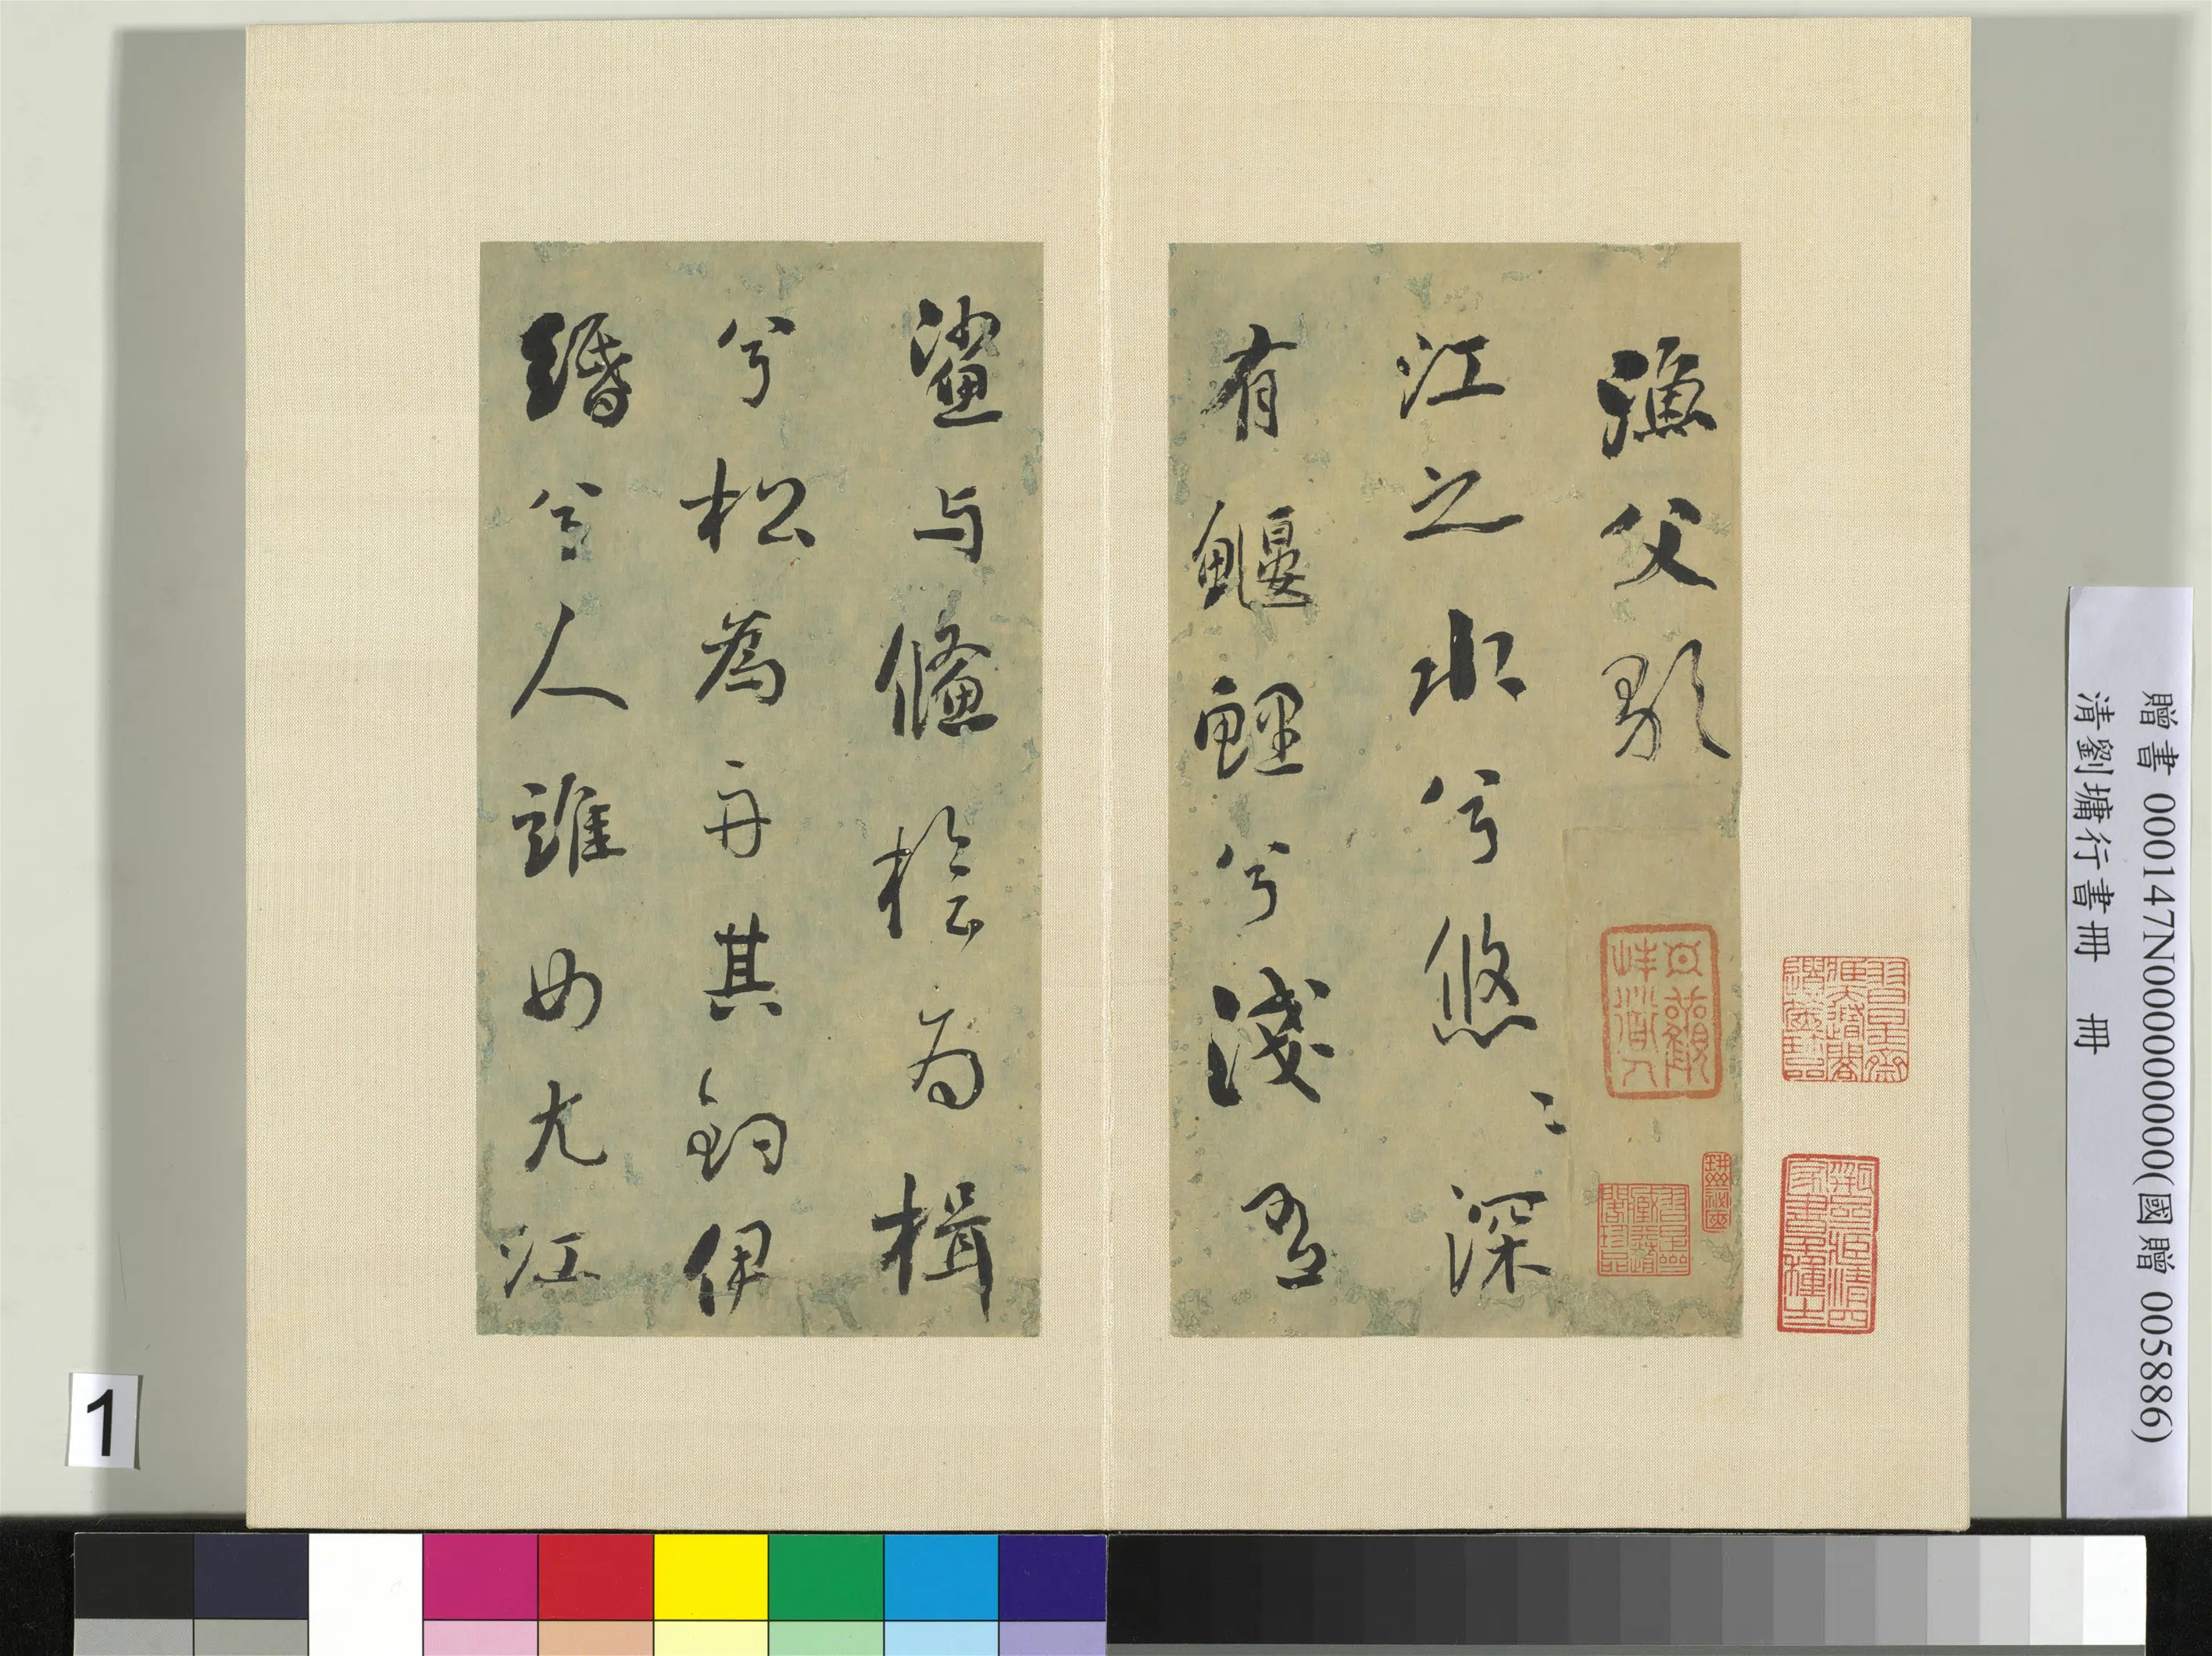 漁父歌
江之水兮悠〻深
有鰋鯉兮淺有
鯊与鯈桧为楫
兮松為舟其釣伊
緡兮人誰毋尤江
贈書 000147N000000000(國贈 005886)
清劉墉行書冊 冊
1